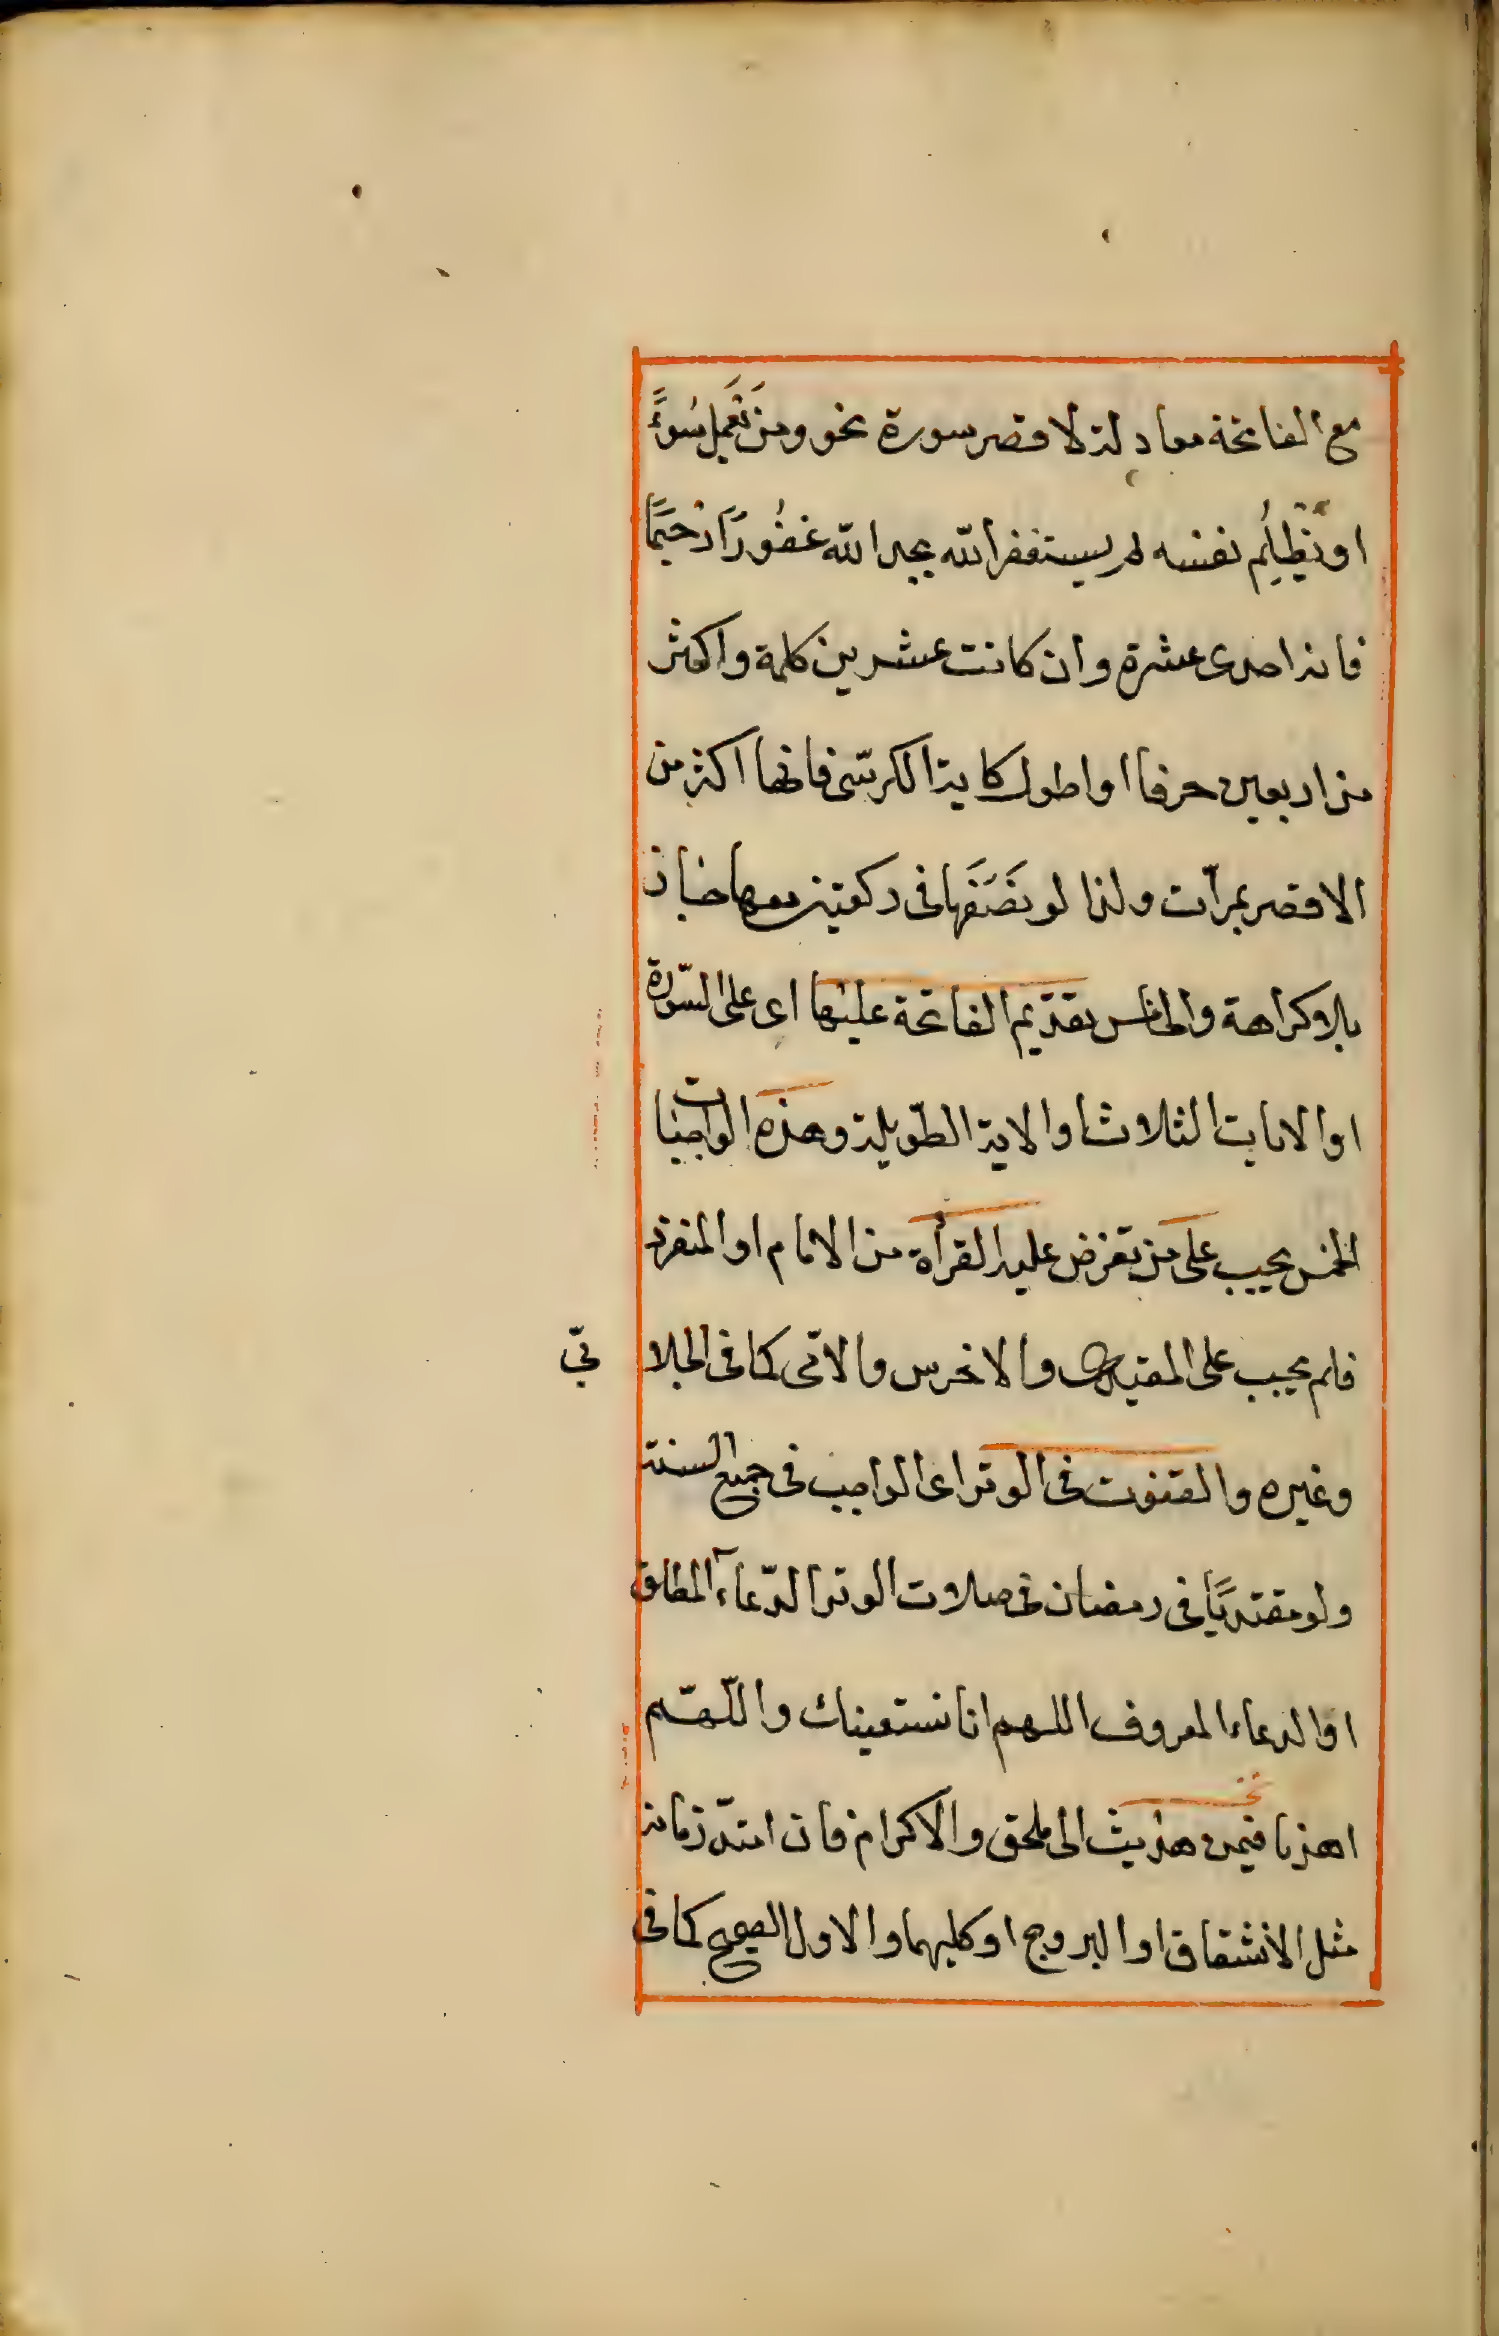 مع الفاتحة معادلة لاقصر سورة نحو ومَن يَعْمَل سُوءً
او يَظْلِم نفسه ثم يستغفر الله يجد الله غَفُورًا رَحيمًا
فانه احدى عشرة وان كانت عشرين كلمة واكثر
من اربعين حرفا او اطول كاية الكرسّى فانها اكثر من
الاقصر بمرّات ولذا لو نَصَّفَها فى ركعتين معها جاز
بلا وكراهة والخامس تقديم الفاتحة عليها اى على السّورة
او الايات الثلاث او الاية الطّويلة وهذه الواجبات
الخمس يجب على من تفرض عليه القرأة من الامام او المنفرد
فلم يجب على المقتدى والاخرس والامّى كما فى الجلابّى
وغيره والقنوت فى الوتر اى الواجب فى جميع السنة
ولو مقتديًا فى رمضان فى صلات الوتر الدّعآء المطلق
او الدعاء المعروف اللهم انا نستعينك واللّهمّ
اهدنا فيمن هديت الى ملحق والاكرام فان امتدّ زمانه
مثل الانشقاق او البروج او كليهما والاول الصحيح كما فى